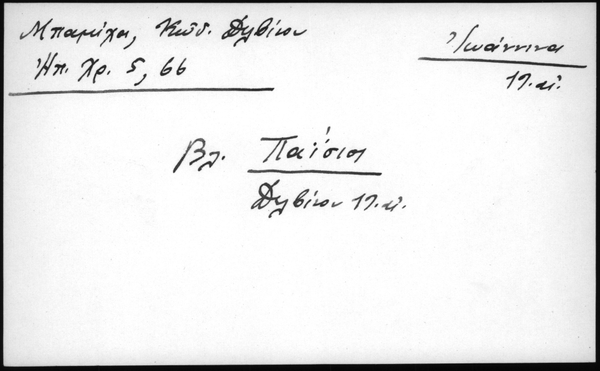 Μπαμίχα, Κώδ. Δελβίνου
Ἠπ. Χρ. 5, 66
Ἰωάννινα
19. αἰ.
Βλ. Παΐσιος
Δελβίνου 19. αἰ.